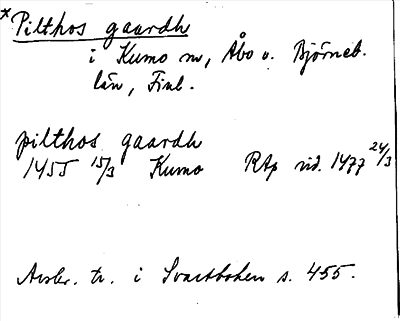 * Pilthos gaardh
i Kumo sn, Åbo o. Björneb.
län, Finl.
pilthos gaardh
1455 15/3 Kumo RAp vid. 1477 24/3
Avskr. tr. i Svartboken s. 455.